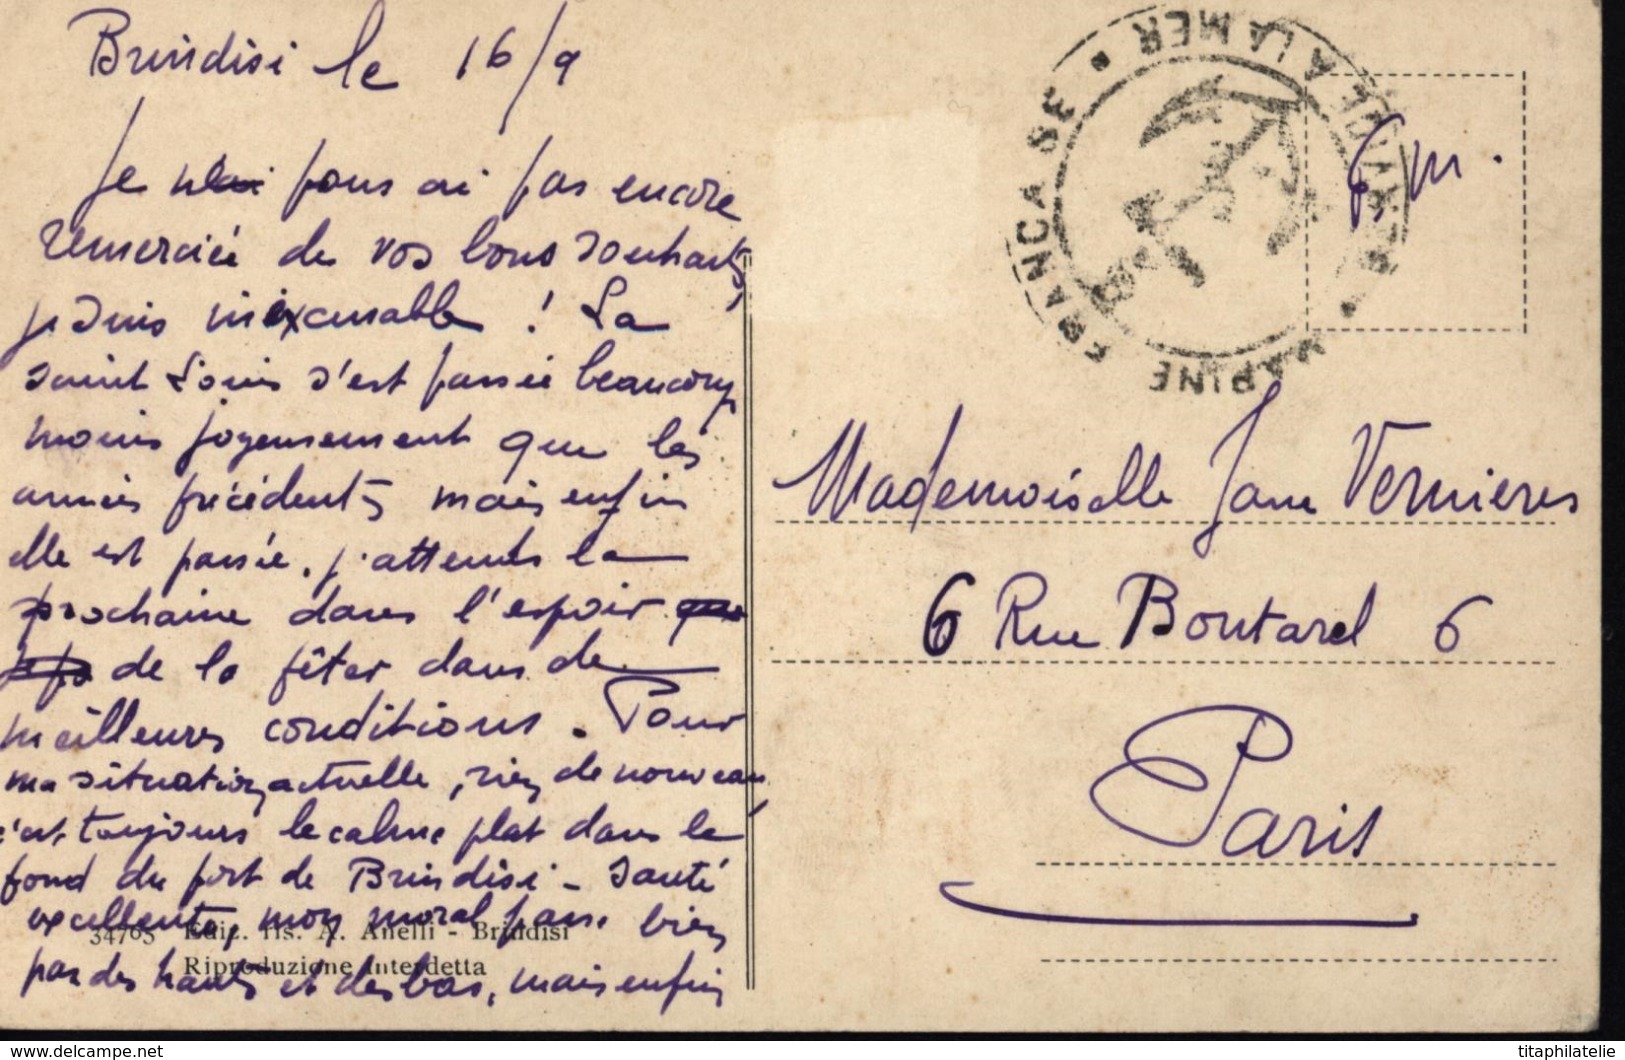 Brindisi le 16/9
Je n'ai pous ai pas encore
remerciée de vos bons souhaits
je suis inexcusable ! La
saint Louis s'est passée beaucoup
moins joyeusement que les
années précédents mais enfin
elle est passée. j'attends la
prochaine dans l'espoir que
je pa de la fêter dans de
meilleures conditions. Pour
ma situation actuelle, rien de nouveau
c'est toujours le calme plat dans le
fond du port de Brindisi - Santé
excellente, mon moral pass. bien
par des hauts et des bas, mais enfin
34765 Ediz. ris. A. Anelli - Brindisi
Riproduzione Interdetta
MARINE FRANCAISE
A LA MER
F.M.
Mademoiselle Jane Vernieres
6 Rue Boutarel 6
Paris
https://www.delcampe.net
titaphilatelie